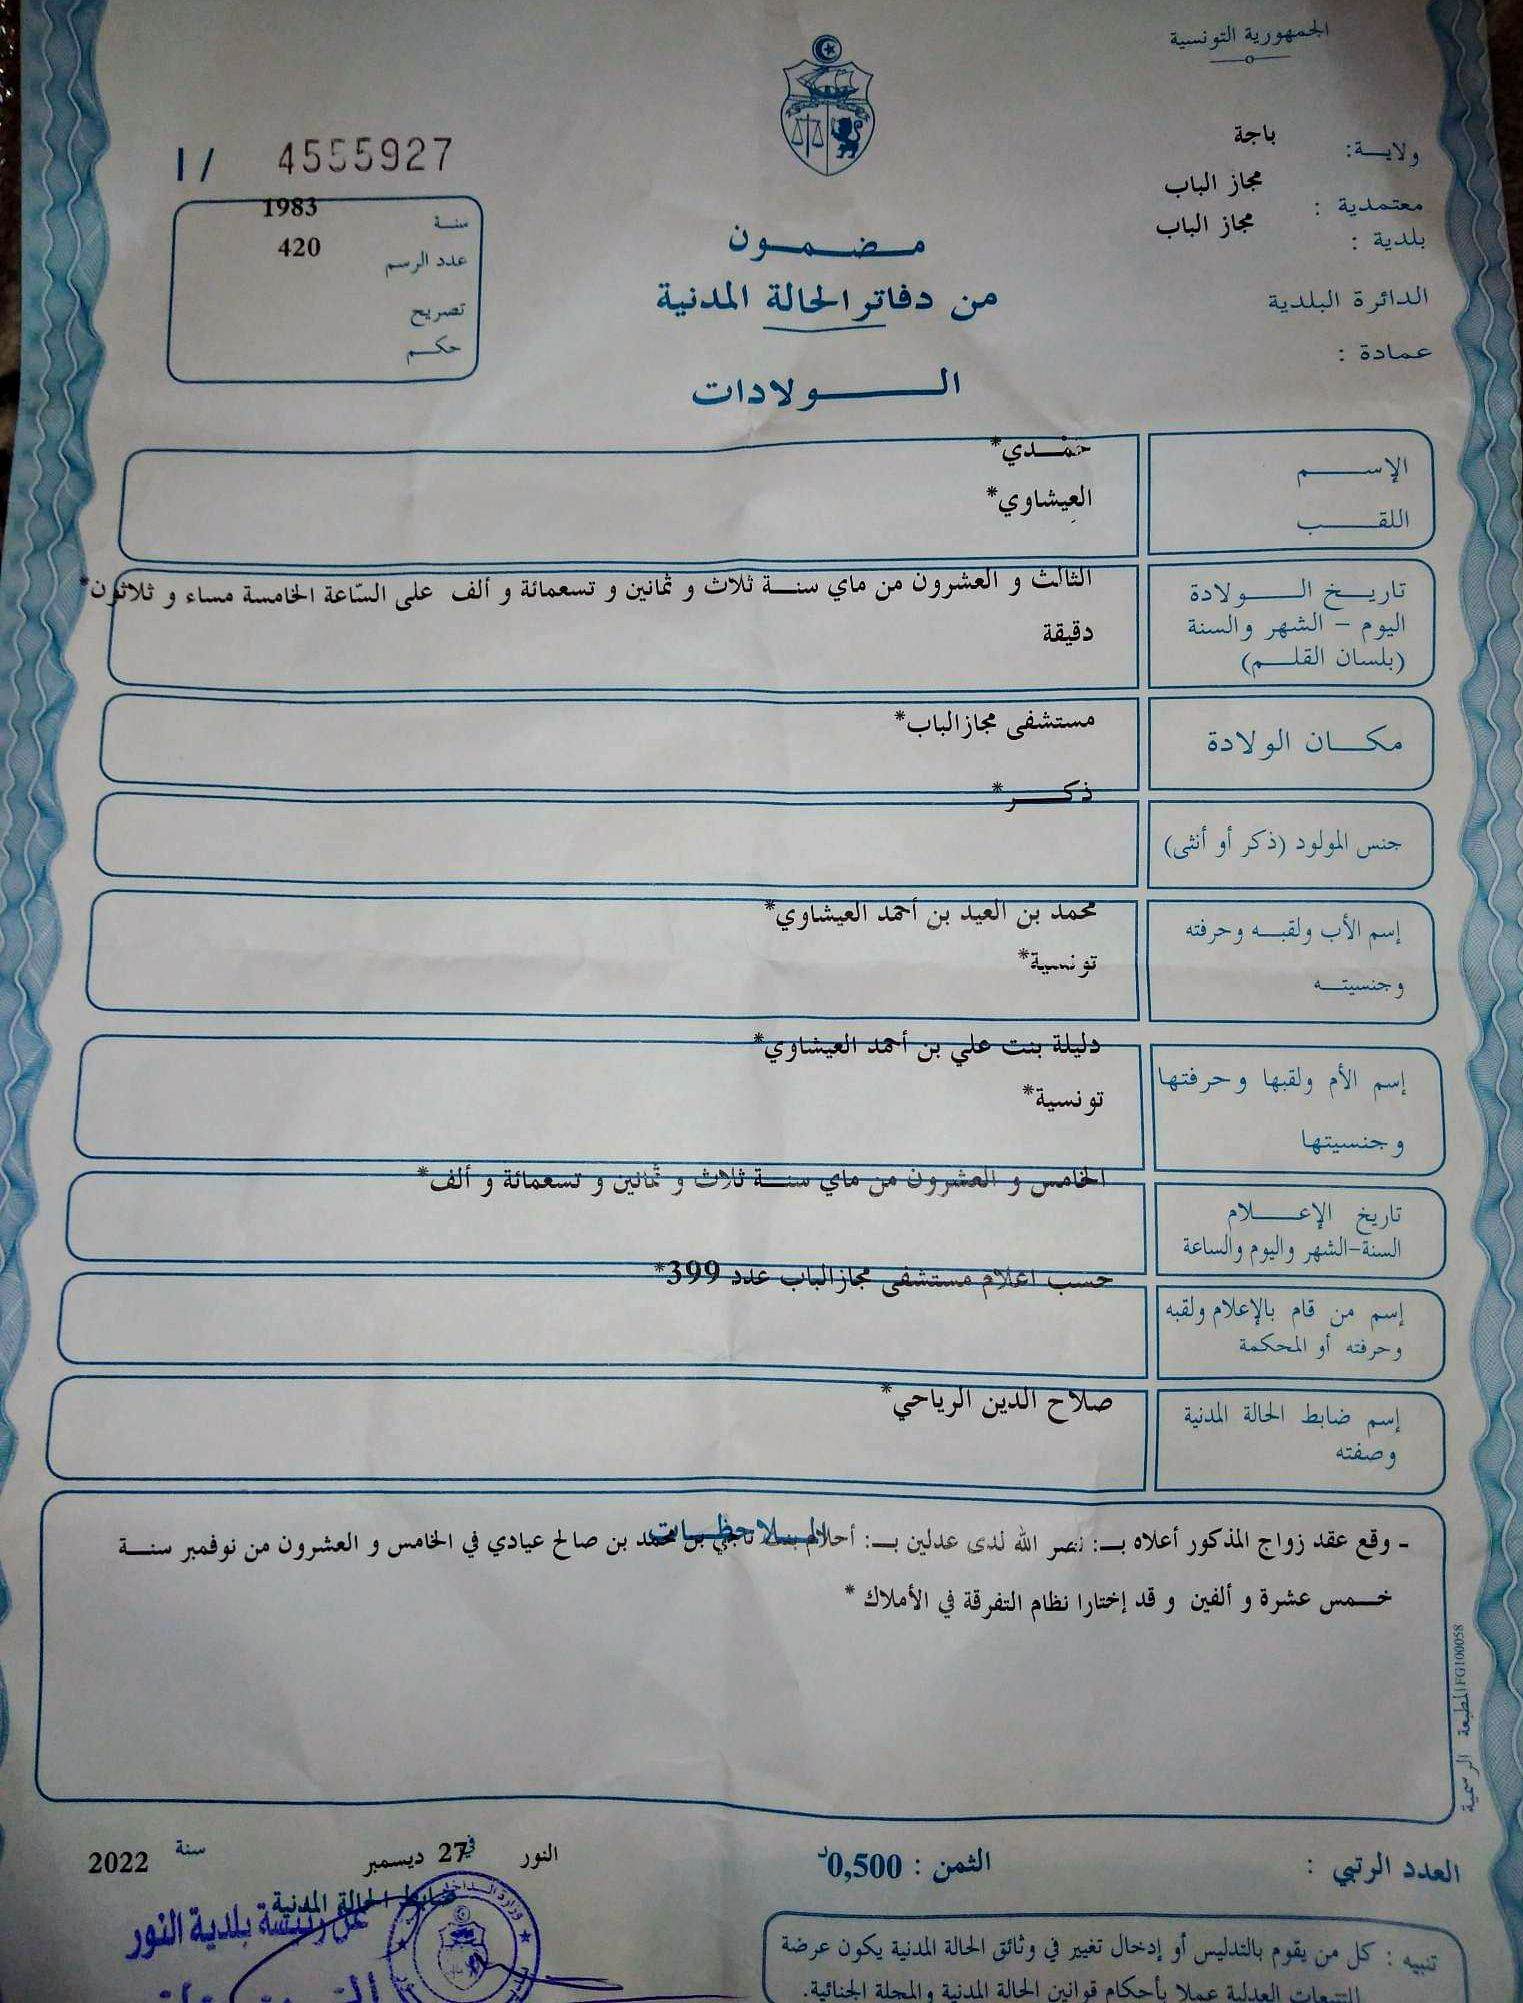 الجمهورية التونسية
ولايـــة: باجة
معتمدية : مجاز الباب
بلدية : مجاز الباب
الدائرة البلدية
عمادة :
1/ 4555927
سنة 1983
عدد الرسم 420
تصريح
حكم
مضمون
من دفاتر الحالة المدنية
الولادات
الإسم حمدي*
اللقب العيشاوي*
تاريخ الولادة الثالث و العشرون من ماي سنة ثلاث و ثمانين و تسعمائة و ألف على السّاعة الخامسة مساء و ثلاثون*
اليوم - الشهر والسنة دقيقة
(بلسان القلم)
مكان الولادة مستشفى مجاز الباب*
ذكر*
جنس المولود (ذكر أو أنثى)
إسم الأب ولقبه وحرفته محمد بن العيد بن أحمد العيشاوي*
وجنسيته تونسية*
إسم الأم ولقبها وحرفتها دليلة بنت علي بن أحمد العيشاوي*
وجنسيتها تونسية*
تاريخ الإعلام الخامس و العشرون من ماي سنة ثلاث و ثمانين و تسعمائة و ألف*
السنة-الشهر واليوم والساعة
إسم من قام بالإعلام ولقبه حسب اعلام مستشفى مجاز الباب عدد 399*
وحرفته أو المحكمة
إسم ضابط الحالة المدنية صلاح الدين الرياحي*
وصفته
الملاحظات
- وقع عقد زواج المذكور أعلاه بـ: نصر الله لدى عدلين بـ: أحلام بنت ناجي بن محمد بن صالح عيادي في الخامس و العشرون من نوفمبر سنة
خمس عشرة و ألفين و قد إختارا نظام التفرقة في الأملاك *
المطبعة الرسمية FG100058
العدد الرتبي :
الثمن : 0,500د
النور في 27 ديسمبر سنة 2022
ضابط الحالة المدنية
عن رئيسة بلدية النور
تنبيه : كل من يقوم بالتدليس أو إدخال تغيير في وثائق الحالة المدنية يكون عرضة
للتتبعات العدلية عملا بأحكام قوانين الحالة المدنية والمجلة الجنائية.